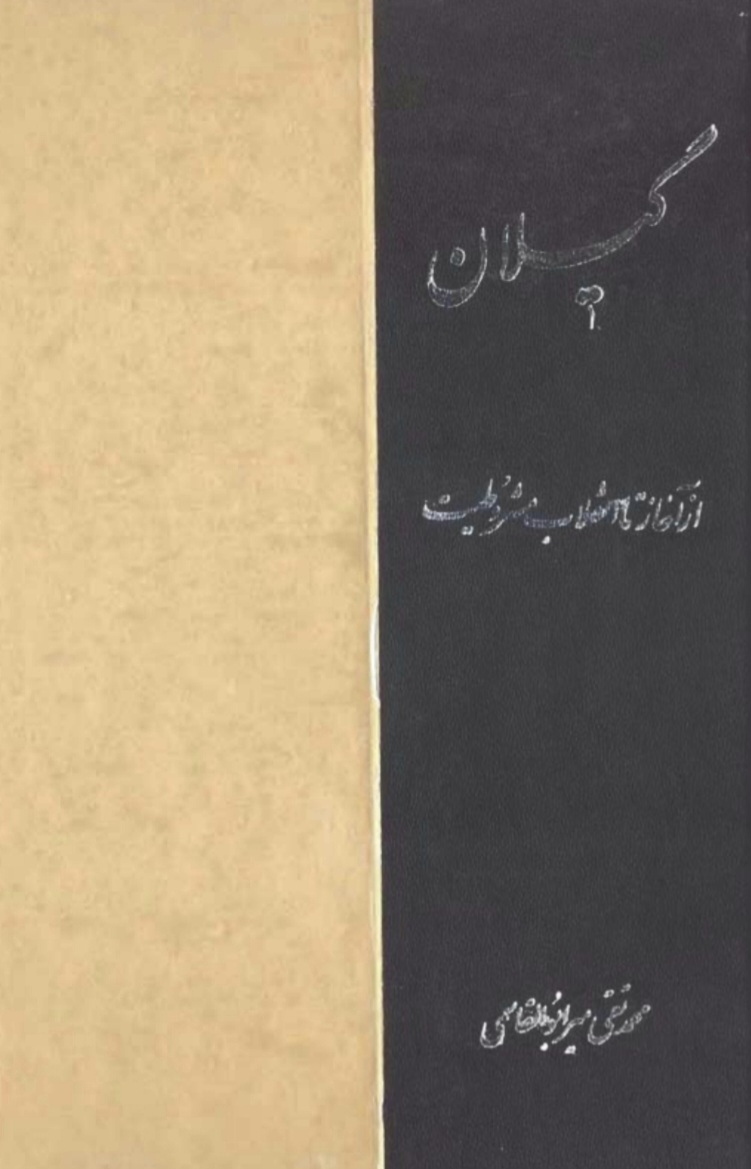 گیلان
از آغاز تا انقلاب مشروطیت
محمد تقی میرابوالقاسمی